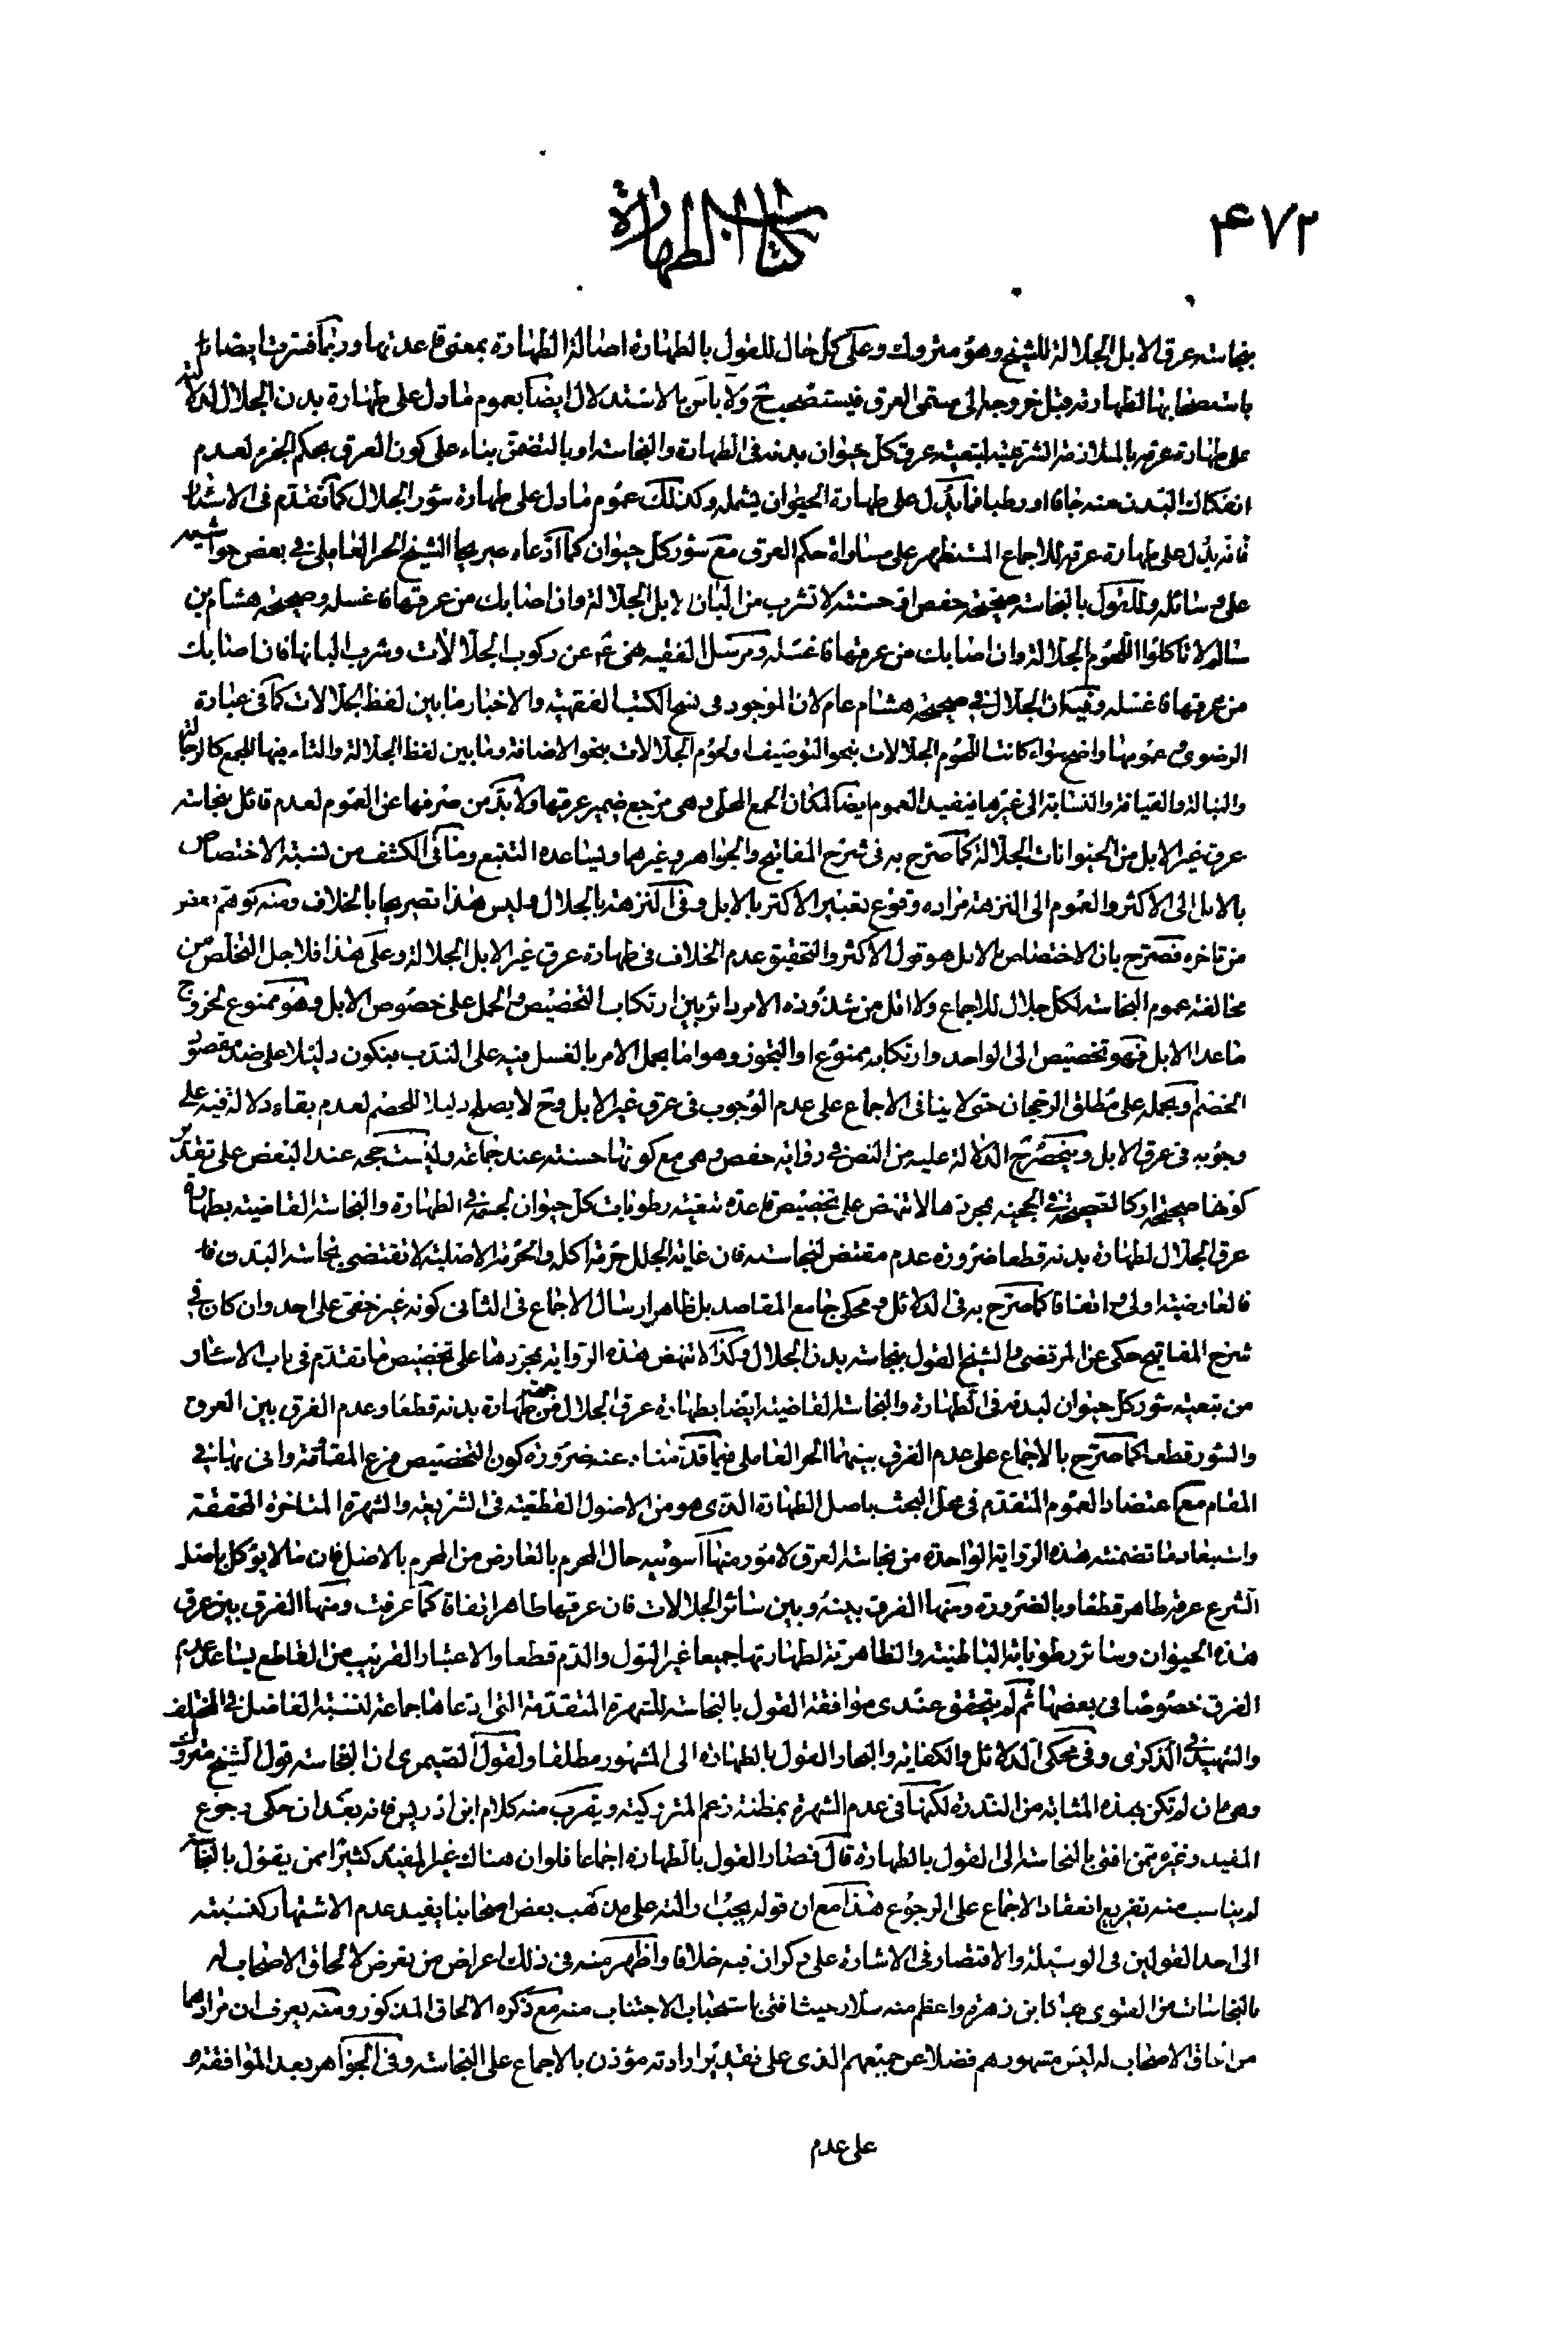 ۴۷۲
كتاب الطهارة
بنجاسة عرق الابل الجلالة للشيخ وهو متروك وعلى كل حال للقول بالطهارة اصالة الطهارة بمعنى قاعدتها وربما فسرت ايضا
باستصحابها لطهارته قبل خروجه الى مسمى العرق فيستصحب ح ولا باس بالاستدلال ايضا بعموم ما دل على طهارة بدن الجلال الدالة
على طهارة عرقه بالملازمة الشرعية لتبعية عرق كل حيوان بدنه فى الطهارة والنجاسة او بالتضمن بناء على كون العرق بحكم الجزء لعدم
انفكاك البدن عنه جافا او رطبا فما يدل على طهارة الحيوان يشمله وكذلك عموم ما دل على طهارة سؤر الجلال كما تقدم فى الاسئار
فانه يدل على طهارة عرقه للاجماع المستظهر على مساواة حكم العرق مع سؤر كل حيوان كما ادعاه صريحا الشيخ الحر العاملى فى بعض حواشيه
على وسائله وللقول بالنجاسة صحيحة حفص او حسنته لا تشرب من البان الابل الجلالة وان اصابك من عرقها فاغسله وصحيحة هشام بن
سالم لا تاكلوا اللحوم الجلالة وان اصابك من عرقها فاغسله ومرسل الفقيه نهى ع عن ركوب الجلالات وشرب البانها فان اصابك
من عرقها فاغسله وفيه ان الجلال فى صحيحة هشام عام لان الموجود فى نسخ الكتب الفقهية والاخبار ما بين لفظ الجلالات كما فى عبارة
الرضوى وعمومها واضح سواء كانت اللحوم الجلالات بنحو التوصيف او لحوم الجلالات بنحو الاضافة وما بين لفظ الجلالة والتاء فيها للجمع كالرجالة
والنبالة والقيافة والنسابة الى غيرها فيفيد العموم ايضا لمكان الجمع المحلى وهى مرجع ضمير عرقها ولابد من صرفها عن العموم لعدم قائل بنجاسة
عرق غير الابل من الحيوانات الجلالة كما صرح به فى شرح المفاتيح والجواهر وغيرهما ويساعده التتبع وما فى الكشف من نسبة الاختصاص
بالابل الى الاكثر والعموم الى النزهة مراده وقوع تعبير الاكثر بالابل وفى النزهة بالجلال وليس هذا تصريحا بالخلاف ومنه توهم بعض
من تاخره فصرح بان الاختصاص بالابل هو قول الاكثر والتحقيق عدم الخلاف فى طهارة عرق غير الابل الجلالة وعلى هذا فلاجل التخلص من
مخالفة عموم النجاسة لكل جلال للاجماع ولا اقل من شذوذه الامر دائر بين ارتكاب التخصيص والحمل على خصوص الابل وهو ممنوع لخروج
ماعدا الابل فهو تخصيص الى الواحد وارتكابه ممنوع او التجوز وهو اما بحمل الامر بالغسل فيه على الندب فيكون دليلا على ضد مقصود
الخصم او بحمله على مطلق الرجحان حتى لا ينافى الاجماع على عدم الوجوب فى عرق غير الابل وح لا يصلح دليلا للخصم لعدم بقاء دلالة فيه على
وجوبه فى عرق الابل وينحصر ح الدلالة عليه من النص فى رواية حفص وهى مع كونها حسنة عند جماعة وليست حجة عند البعض على تقدير
كونها صحيحة او كالصحيحة فى الحجية بمجردها لا تنهض على تخصيص قاعدة تبعية رطوبات كل حيوان لجسمه فى الطهارة والنجاسة القاضية بطهارة
عرق الجلال لطهارة بدنه قطعا ضرورة عدم مقتض لنجاسته فان غاية الجلل حرمة اكله والحرمة الاصلية لا تقتضى نجاسة البدن
فالعارضية اولى واتفاقا كما صرح به فى الدلائل ومحكى جامع المقاصد بل ظاهر ارسال الاجماع فى الثانى كونه غير خفى على احد وان كان فى
شرح المفاتيح حكى عن المرتضى والشيخ القول بنجاسة بدن الجلال وكذا لا تنهض هذه الرواية بمجردها على تخصيص ما تقدم فى باب الاسئار
من تبعية سؤر كل حيوان لبدنه فى الطهارة والنجاسة القاضية ايضا بطهارة عرق الجلال من جهة طهارة بدنه قطعا وعدم الفرق بين العرق
والسؤر قطعا كما صرح بالاجماع على عدم الفرق بينهما الحر العاملى فيما قدمناه عنه ضرورة كون التخصيص فرع المقاومة وانى بها فى
المقام مع اعتضاد العموم المتقدم فى محل البحث باصل الطهارة الذى هو من الاصول القطعية فى الشريعة والشهرة المتاخرة المحققة
واستبعاد ما تضمنته هذه الرواية الواحدة من نجاسة العرق لامور منها اسوئية حال المحرم بالعارض من المحرم بالاصل فان ما لا يؤكل باصل
الشرع عرقه طاهر قطعا وبالضرورة ومنها الفرق بينه وبين سائر الجلالات فان عرقها طاهر اتفاقا كما عرفت ومنها الفرق بين عرق
هذه الحيوان وسائر رطوباته الباطنية والظاهرية لطهارتها جميعا غير البول والدم قطعا والاعتبار القريب من القاطع يساعد عدم
الفرق خصوصا فى بعضها ثم لم يتحقق عندى موافقة القول بالنجاسة للشهرة المتقدمة التى ادعاها جماعة لنسبة الفاضل فى المختلف
والشهيد فى الذكرى وفى محكى الدلائل والكفاية والبحار القول بالطهارة الى المشهور مطلقا ولقول الصيمرى ان النجاسة قول الشيخ متروك
وهى وان لم تكن بهذه المثابة من الندرة لكنها فى عدم الشهرة بمظنة زعم المتروكية ويقرب منه كلام ابن ادريس فانه بعد ان حكى رجوع
المفيد وغيره ممن افتى بالنجاسة الى القول بالطهارة قال فصار القول بالطهارة اجماعا فلو ان هناك غير المفيد كثيرا ممن يقول بالنجاسة
لم يناسب منه تفريع انعقاد الاجماع على الرجوع هذا مع ان قوله يجب ازالته على مذهب بعض اصحابنا يفيد عدم الاشتهار كنسبته
الى احد القولين فى الوسيلة والاقتصار فى الاشارة على ذكر ان فيه خلافا واظهر منه فى ذلك اعراض من تعرض لالحاق الاصحاب له
بالنجاسات من الفتوى بها كابن زهرة واعظم منه سلار حيث افتى باستحباب الاجتناب منه مع ذكره الالحاق المذكور ومنه يعرف ان مرادهما
من الحاق الاصحاب له ليس مشهورهم فضلا عن جميعهم الذى على تقدير ارادته مؤذن بالاجماع على النجاسة وفى الجواهر بعد الموافقة
على عدم